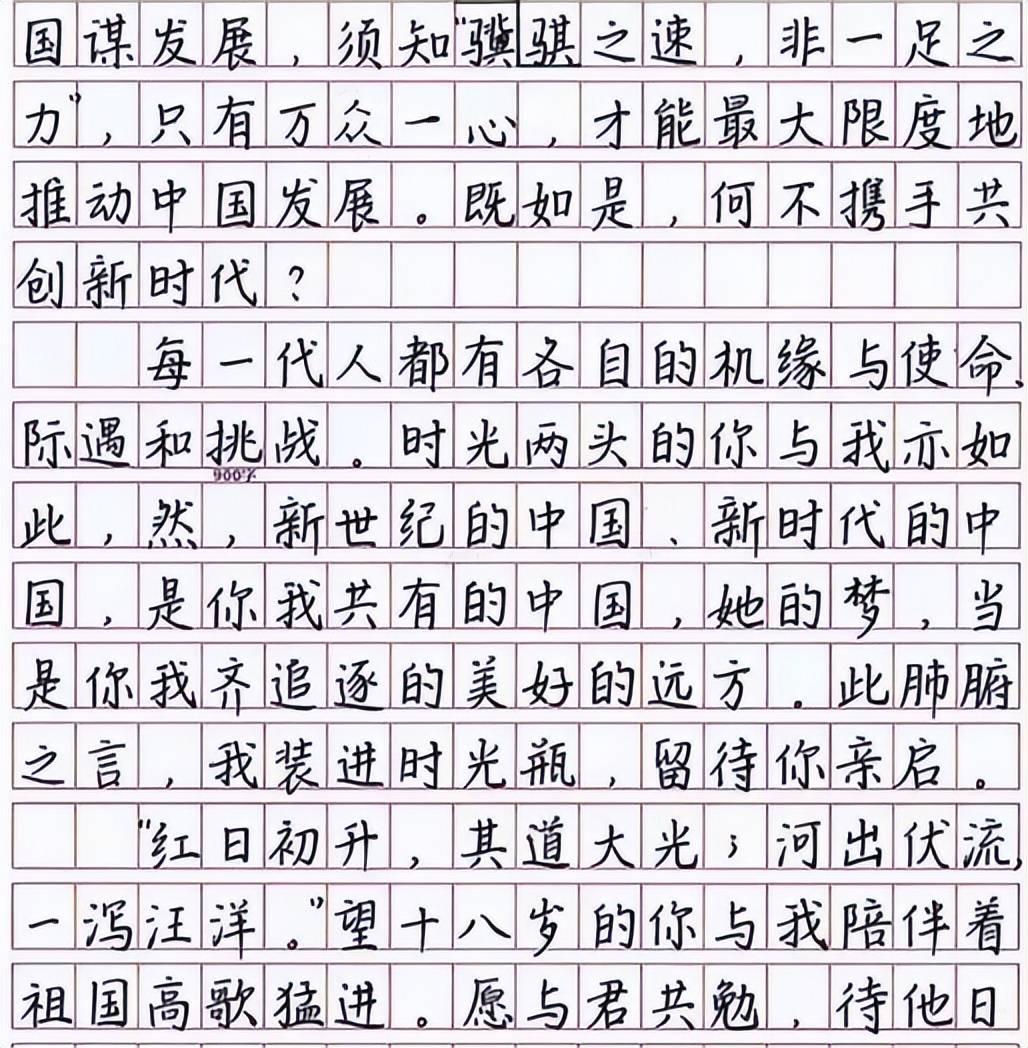 国谋发展，须知“骥骐之速，非一足之
力”，只有万众一心，才能最大限度地
推动中国发展。既如是，何不携手共
创新时代？
每一代人都有各自的机缘与使命、
际遇和挑战。时光两头的你与我亦如
900字
此，然，新世纪的中国、新时代的中
国，是你我共有的中国，她的梦，当
是你我齐追逐的美好的远方。此肺腑
之言，我装进时光瓶，留待你亲启。
“红日初升，其道大光；河出伏流，
一泻汪洋。”望十八岁的你与我陪伴着
祖国高歌猛进。愿与君共勉，待他日